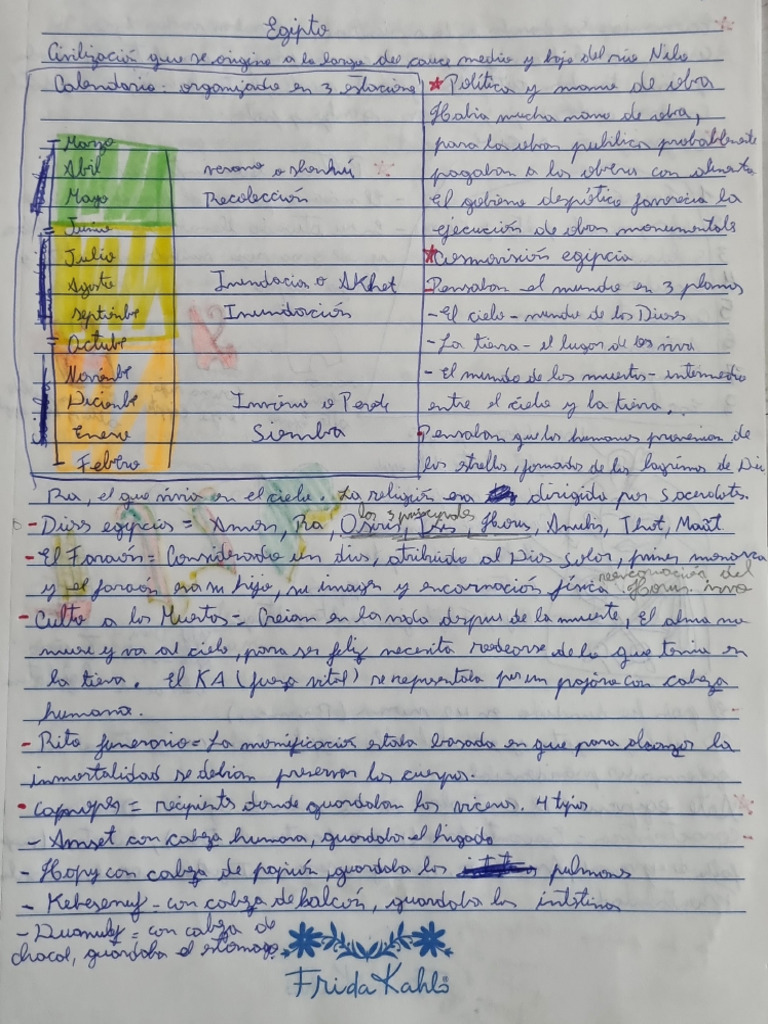 Egipto
Civilización que se origino a lo largo del cauce medio y bajo del rio Nilo
Calendario: organizado en 3 estaciones
Marzo
Abil
verano o shemú
Mayo
Recolección
Junio
Julio
Agosto
Inundacion o AKhet
septienbre
Inundación
Octubre
Noviembre
Diciembre
Invierno o Peret
Enero
Siembra
Febrero
* Política y mano de obra
Habia mucha mano de obra,
para las obras publicas probablemente
pagaban a los obreros con alimentos
El gobierno despótico favorecia la
ejecución de obras monumentales
* Cosmovisión egipcia
- Pensaban el mundo en 3 planos
- El cielo - mundo de los Dioses
- La tierra - el lugar de los vivos
- El mundo de los muertos - intermedio
entre el cielo y la tierra.
- Pensaban que los humanos provenian de
las estrellas, formados de las lagrimas de Dios
Ra, el que vivia en el cielo. La religión era dirigida por sacerdotes.
los 3 principales
- Dioses egipcios = Amon, Ra, Osiris, Isis, Horus, Anubis, Thot, Maat
- El Faraón = Considerado un dios, atribuido al Dios Solar, primer monarca
y el faraón era su hijo, su imagen y encarnación física.
reencarnación del
Horus vivo
- Culto a los Muertos = Creian en la vida despues de la muerte, El alma no
muere y va al cielo, para ser feliz necesita rodearse de lo que tenia en
la tierra. El KA (fuerza vital) se representaba por un pajaro con cabeza
humana.
- Rito funerario = La momificación estaba basada en que para alcanzar la
inmortalidad se debian preservar los cuerpos.
- canopes = recipients donde guardaban las viceras. 4 tipos
- Amset con cabeza humana, guardaba el higado
- Hapy con cabeza de papión, guardaba los pulmones
- Kebesenuf = con cabeza de halcón, guardaba los intestinos
- Duamutef = con cabeza de
chacal, guardaba el estomago
Frida Kahlo